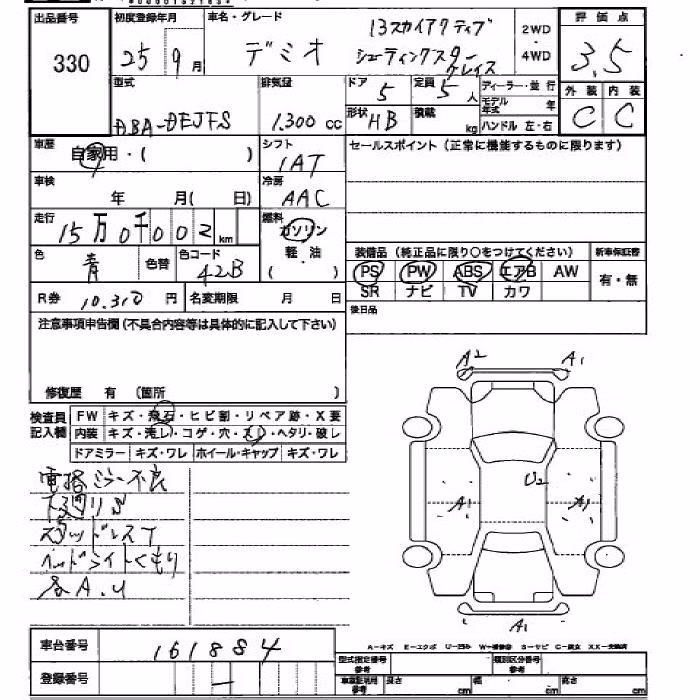 出品番号 330
初度登録年月 25 9月
車名・グレード デミオ 13スカイアクティブ
シューティングスター
2WD ・ 4WD
評価点 3.5
外装 内装
C C
型式 DBA-DEJFS
排気量 1.300 cc
ドア 5
定員 5人
形状 HB
積載 kg
ディーラー・並行
モデル年式 年
ハンドル 左・右
車歴 自家用・( )
シフト IAT
セールスポイント(正常に機能するものに限ります)
車検 年 月( 日)
冷房 AAC
走行 15万0千002km
燃料 ガソリン
軽・油
( )
色 青 色替
色コード 42B
装備品(純正品に限り○をつけてください)
新車保証書
PS PW ABS エアB AW
有・無
SR ナビ TV カワ
R券 10.310円
名変期限 月 日
後日品
注意事項申告欄(不具合内容等は具体的に記入して下さい)
修復歴 有 (箇所 )
検査員記入欄
FW キズ・飛石・ヒビ割・リペア跡・X要
内装 キズ・汚レ・コゲ・穴・スレ・ヘタリ・破レ
ドアミラー キズ・ワレ ホイール・キャップ キズ・ワレ
電格ミラー不良
下廻りS
スタッドレスT
ヘッドライトくもり
各A.U
A2 A1
U2
A1 A1
A1
車台番号 161884
登録番号 —
A-キズ E-エクボ U-凹み W-補修跡 S-サビ C-腐食 XX-交換済
型式指定番号 参考
類別区分番号 参考
車庫証明用 参考 長さ cm 幅 cm 高さ cm